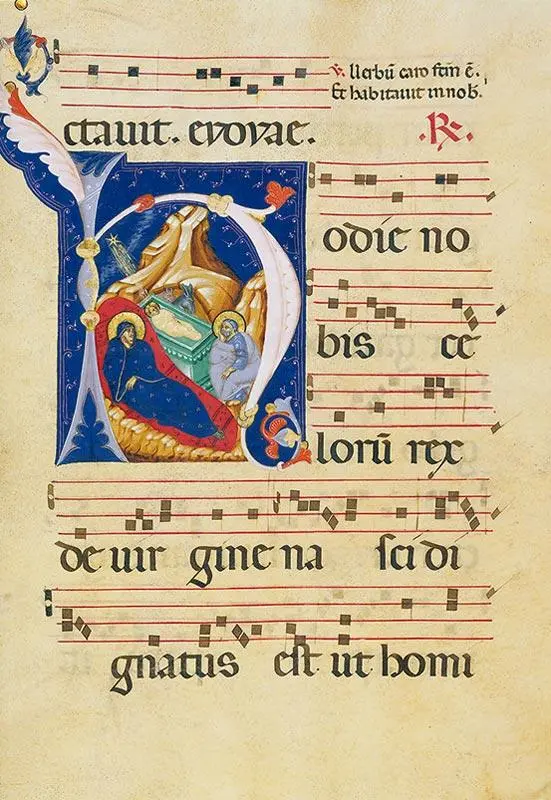 ℣. Uerbū caro fcm̄ ē.
Et habitauit in nob̄.
ctauit. evovae. ℟.
Hodie no
bis ce
lorū rex
de uir gine na sci di
gnatus est ut homi